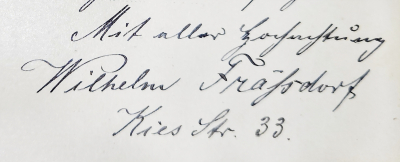 Mit aller Hochachtung
Wilhelm Fräßdorf
Kies Str. 33.